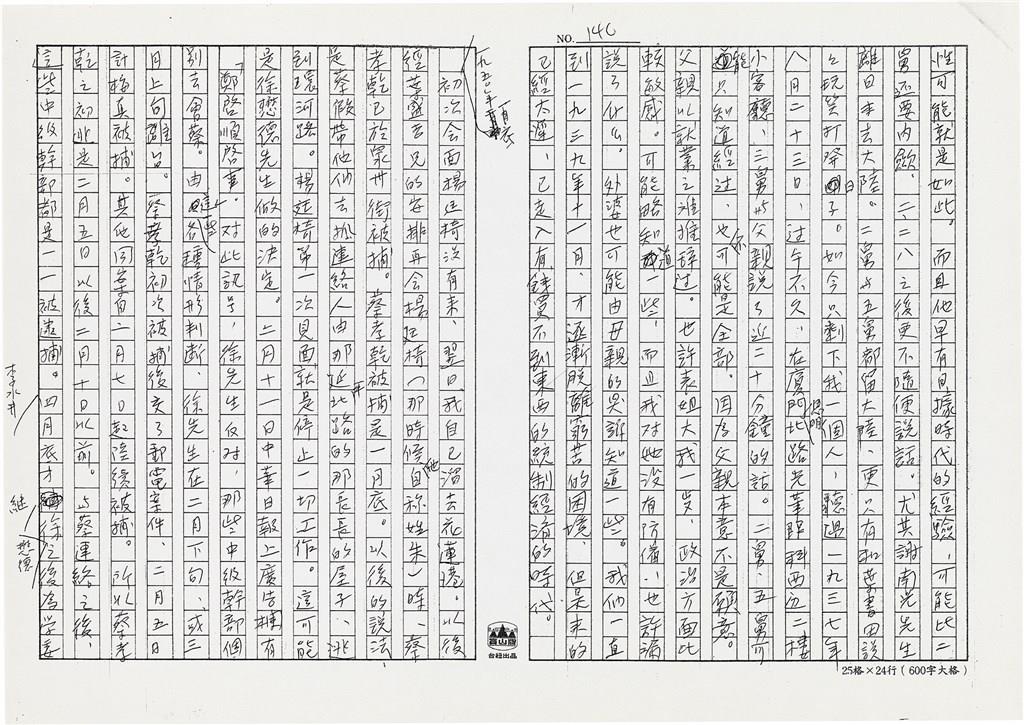 NO. 140
性可能就是如此。而且他早有日據時代的經驗,可能比二
舅还要内歛。二、二八之後更不隨便說話。尤其謝南光先生
離日本去大陸。二舅与五舅都留大陸、更只有和葉書田說
玩笑打降日子。如今只剩下我一個人,聽過一九三七年
八月二十三日、过午不久、在廈門思明北路先峯眼科西分二樓
小客廳、三舅与父親說了近二十分鐘的話。二舅、五舅可
能只知道經过、也不可能是全部。因為父親本意不是願意。
父親以就業之难推辞过。也許表姐大我一岁、政治方面比
較敏感。可能略知道一些、而且我对她没有防備、也許漏
說了什么。外婆也可能由母親的哭訴知道一些。我们一直
到一九三九年十一月、才逐漸脱離窮苦的困境、但是来的
已經太遲、已走入有錢買不到東西的統制經済的時代。
一九五〇年一月
初次会面楊廷椅没有来、翌日我自己溜去花蓮港。以後
經葉盛吉兄的安排再会楊廷椅(那時候他自称姓朱)時、蔡
孝乾已於泉州街被捕。蔡孝乾被捕是一月底。以後的說法
是蔡假带他们去抓連絡人由那延平北路的那長長的屋子、逃
到環河路。楊廷椅第一次見面就是停止一切工作。這可能
是徐懋德先生做的決定。二月十一日中華日報上廣告捕有
「鄭啓順啓事」。对此訊号、徐先生反对、那些中級幹部個
別去會蔡。由這些各種情形判断、徐先生在二月下旬、或三
月上旬離台。蔡孝乾初次被捕後亥了郵電案件、二月五日
計梅真被捕。其他同案自二月七日起陸續被捕。所以蔡孝
乾之初逃是二月五日以後二月十日以前。与蔡連絡之後、
這些中級幹部都是一一被逮捕。四月底才 徐之後為學委
李水井
継
懋德
高山牌
台社出品
25格×24行(600字大格)